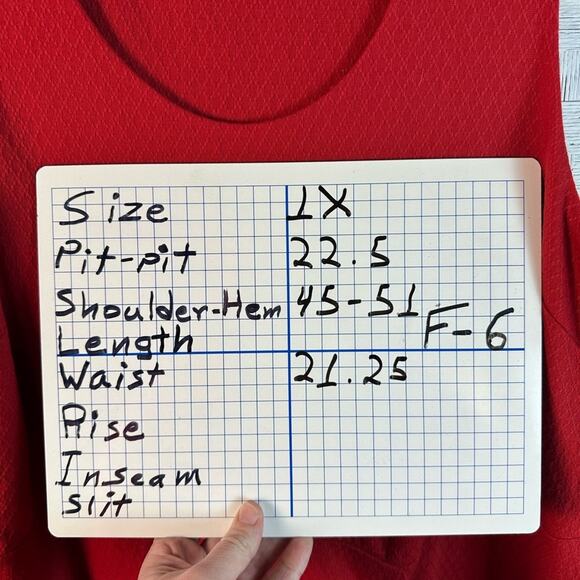 Size 1X
Pit-pit 22.5
Shoulder-Hem 45-51
Length F-6
Waist 21.25
Rise
Inseam
Slit